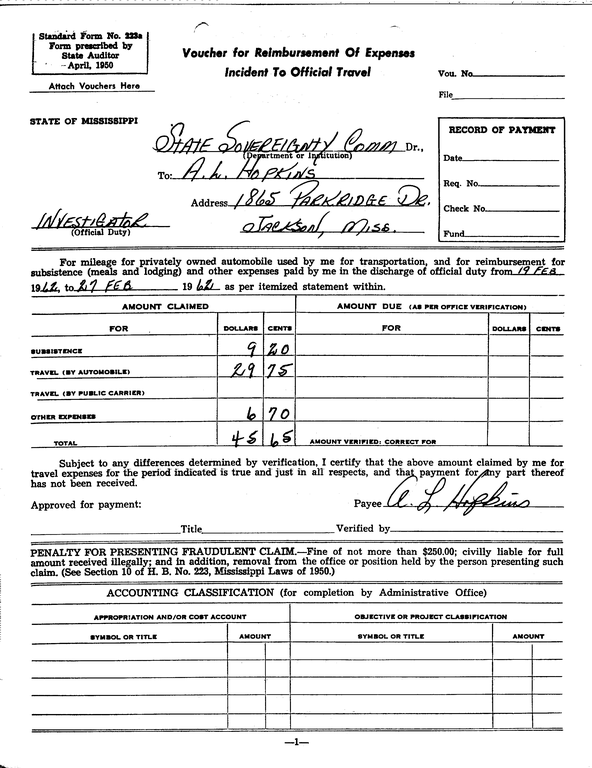 Standard Form No. 223a
Form prescribed by
State Auditor
April, 1950
Attach Vouchers Here
Voucher for Reimbursement Of Expenses
Incident To Official Travel
Vou. No.
File
STATE OF MISSISSIPPI
STATE SOVEREIGNTY COMM Dr.,
(Department or Institution)
To: A. L. HOPKINS
Address 1865 PARKRIDGE DR.
JACKSON, MISS.
INVESTIGATOR
(Official Duty)
RECORD OF PAYMENT
Date
Req. No.
Check No.
Fund
For mileage for privately owned automobile used by me for transportation, and for reimbursement for
subsistence (meals and lodging) and other expenses paid by me in the discharge of official duty from 19 FEB
1962, to 27 FEB 1962 as per itemized statement within.
AMOUNT CLAIMED AMOUNT DUE (AS PER OFFICE VERIFICATION)
FOR DOLLARS CENTS FOR DOLLARS CENTS
SUBSISTENCE 9 20
TRAVEL (BY AUTOMOBILE) 29 75
TRAVEL (BY PUBLIC CARRIER)
OTHER EXPENSES 6 70
TOTAL 45 65 AMOUNT VERIFIED: CORRECT FOR
Subject to any differences determined by verification, I certify that the above amount claimed by me for
travel expenses for the period indicated is true and just in all respects, and that payment for any part thereof
has not been received.
Approved for payment: Payee A. L. Hopkins
Title Verified by
PENALTY FOR PRESENTING FRAUDULENT CLAIM.—Fine of not more than $250.00; civilly liable for full
amount received illegally; and in addition, removal from the office or position held by the person presenting such
claim. (See Section 10 of H. B. No. 223, Mississippi Laws of 1950.)
ACCOUNTING CLASSIFICATION (for completion by Administrative Office)
APPROPRIATION AND/OR COST ACCOUNT OBJECTIVE OR PROJECT CLASSIFICATION
SYMBOL OR TITLE AMOUNT SYMBOL OR TITLE AMOUNT
—1—